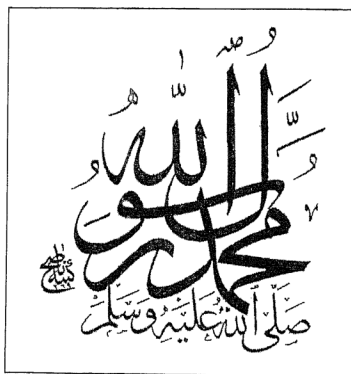 محمد رسول الله
صَلَّى ٱللَّهُ عَلَيْهِ وَسَلَّمَ